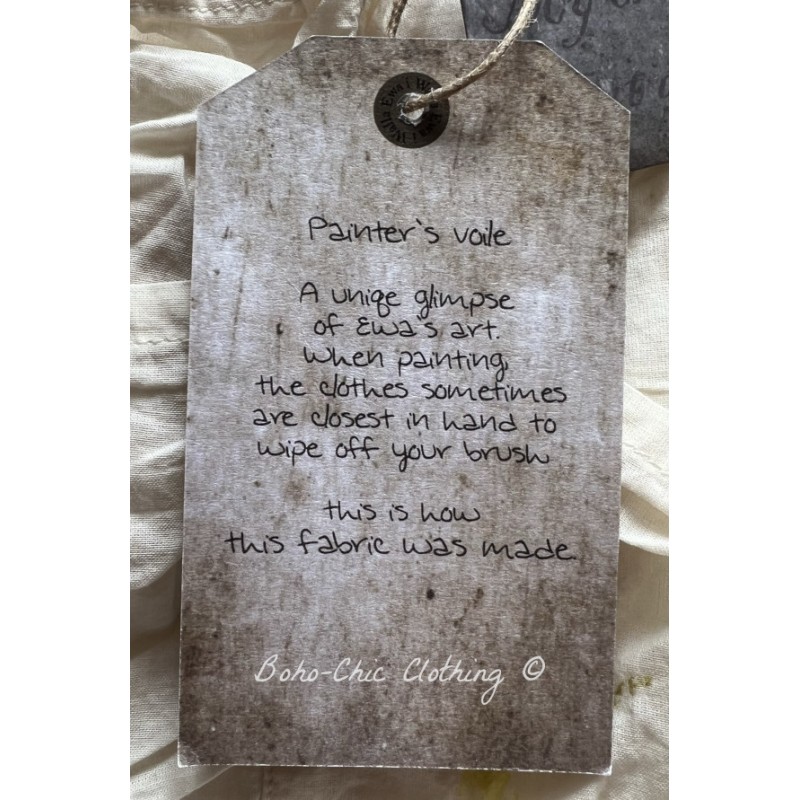 Ewa i Walla
Painter's voile
A uniqe glimpse
of Ewa's art.
When painting,
the clothes sometimes
are closest in hand to
wipe off your brush
this is how
this fabric was made.
Boho-Chic Clothing ©